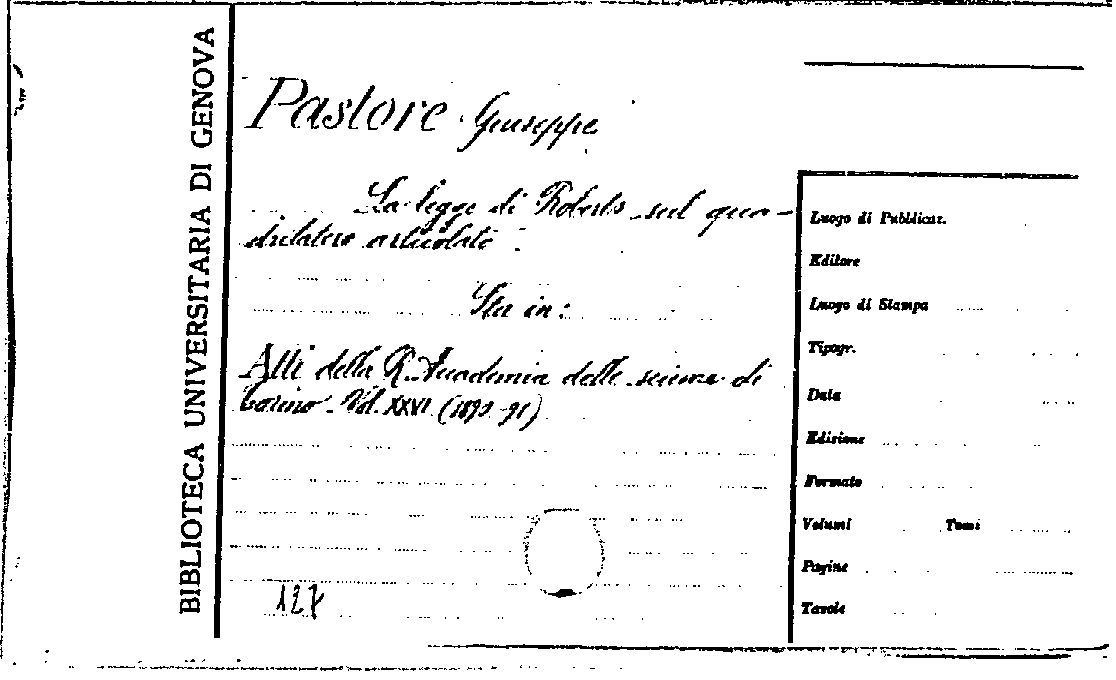 BIBLIOTECA UNIVERSITARIA DI GENOVA
Pastore Giuseppe
La legge di Roberts sul qua-
drilatero articolato.
Sta in:
Atti della R. Accademia delle scienze di
Torino. Vol. XXVI (1890-91)
127
Luogo di Pubblicaz.
Editore
Luogo di Stampa
Tipogr.
Data
Edizione
Formato
Volumi Tomi
Pagine
Tavole